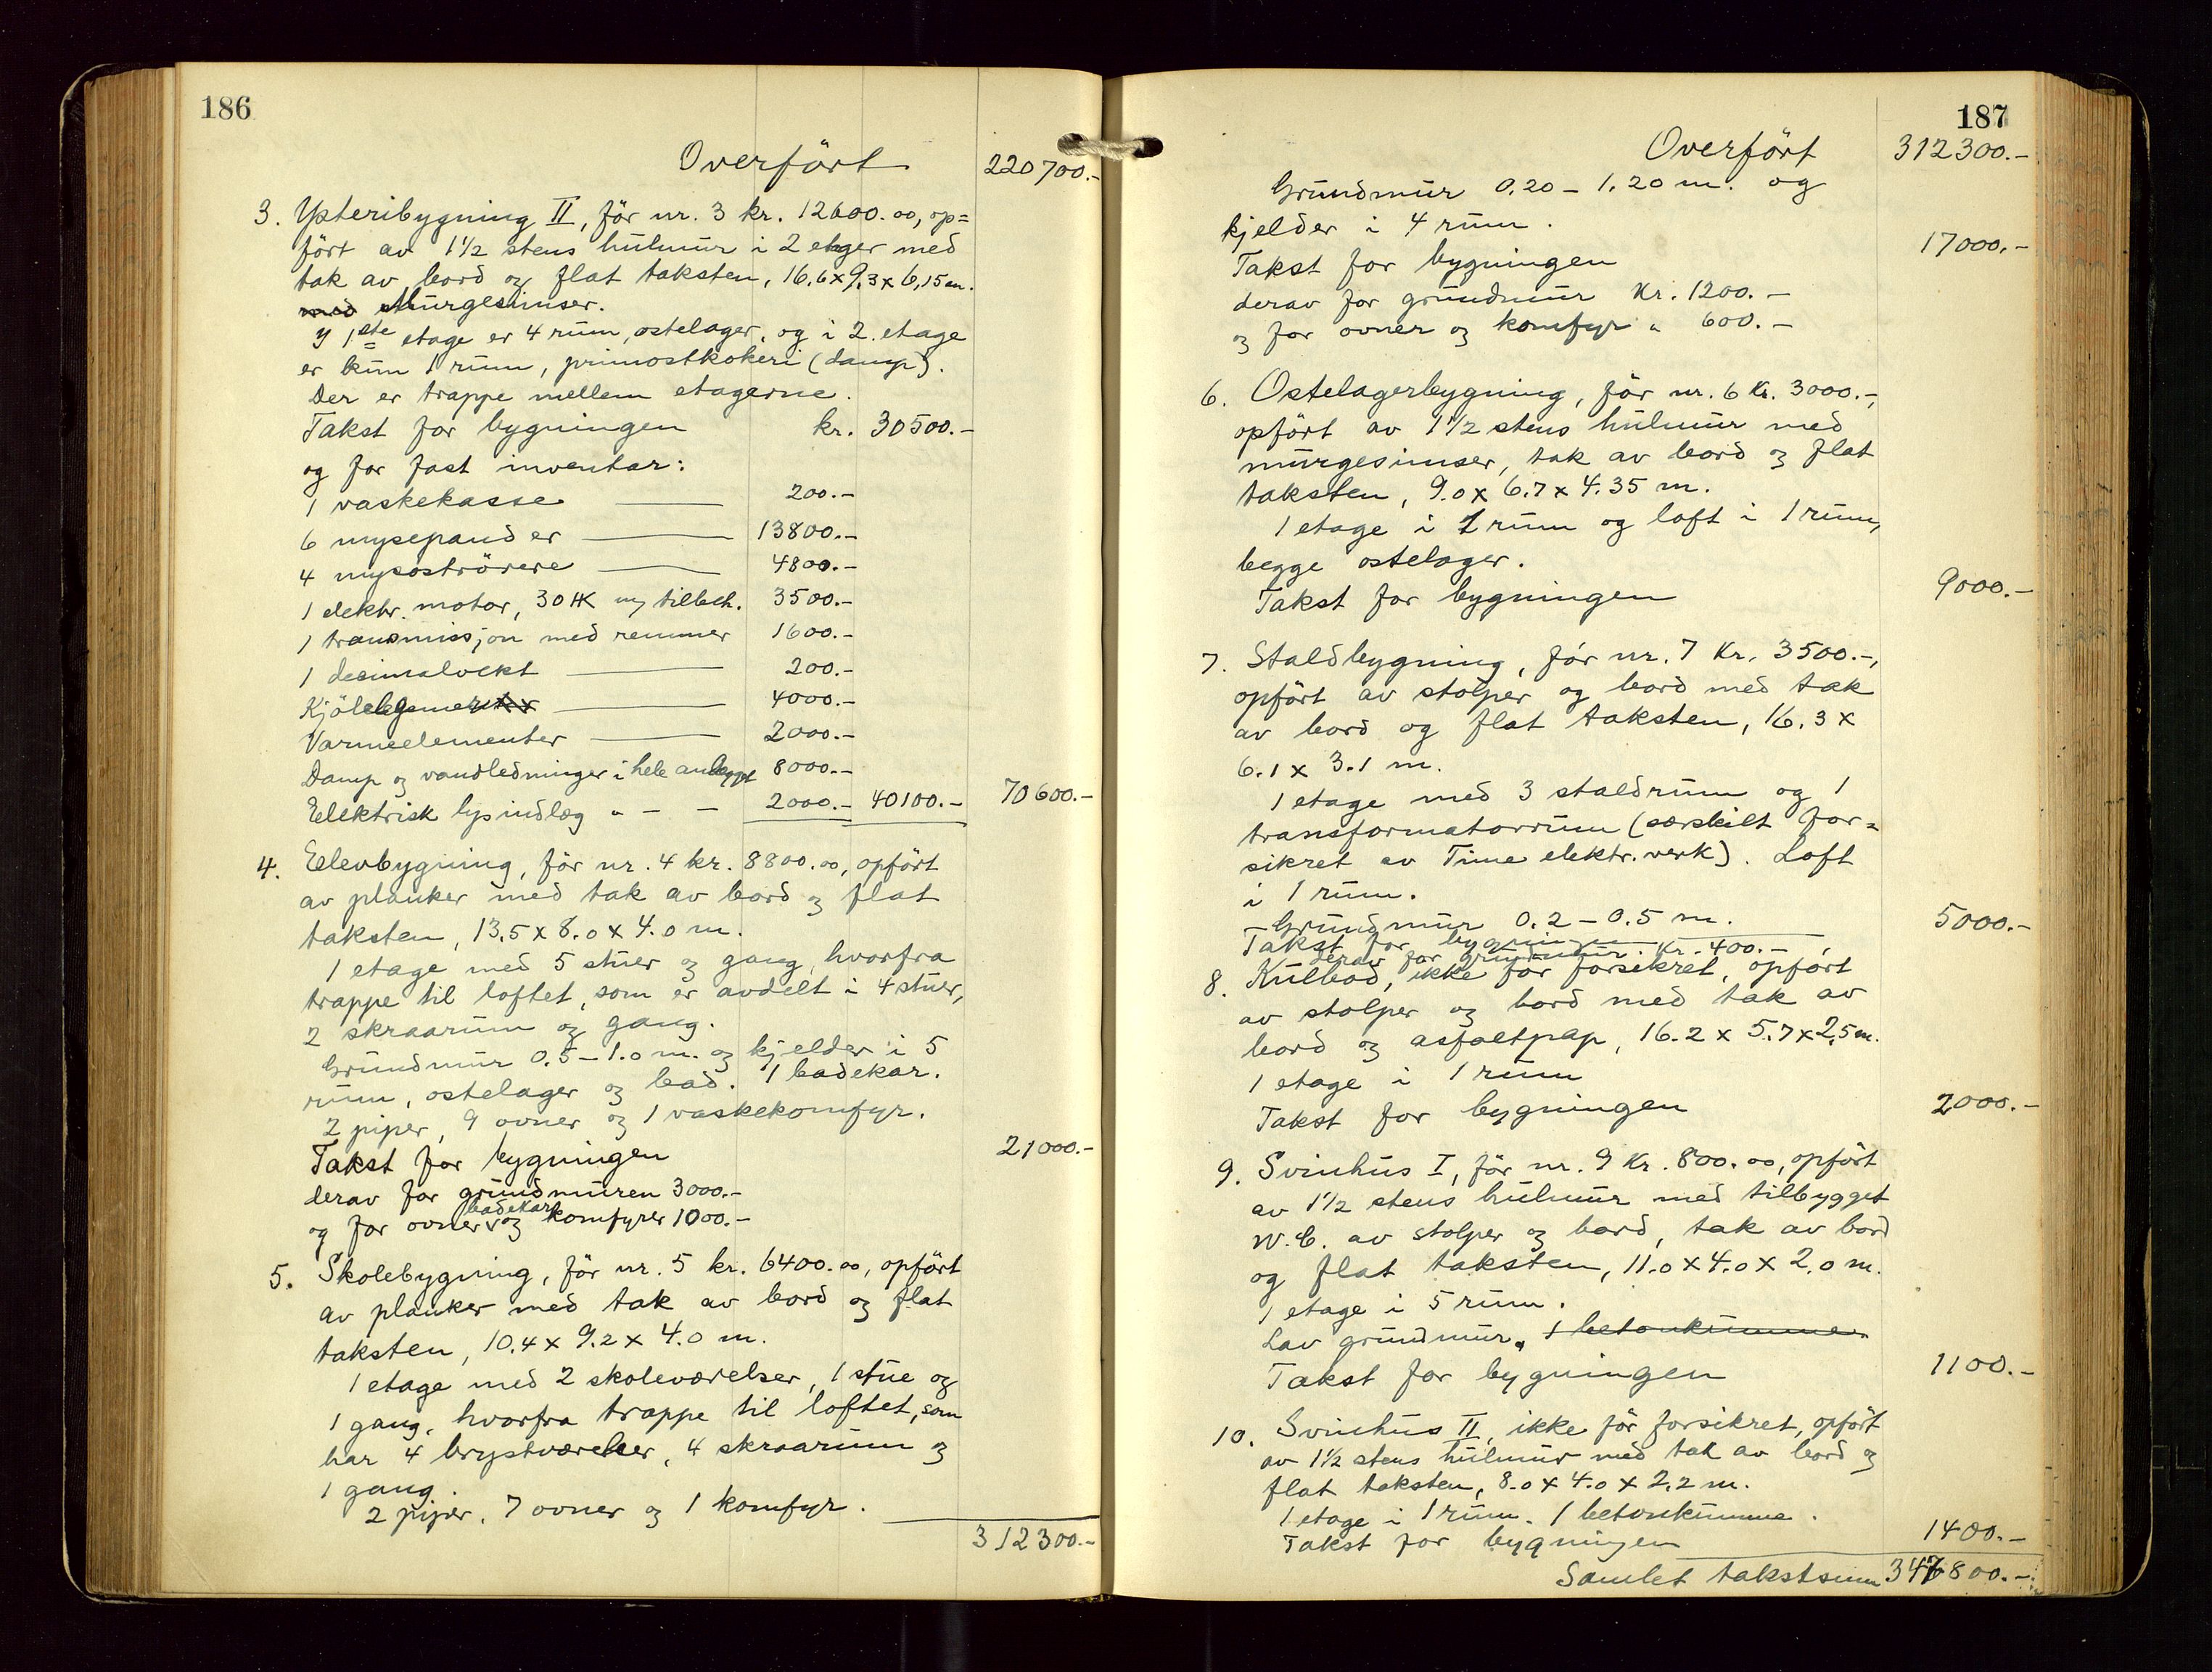 186
Overført 220700.-
3. Ysteribygning II, før nr. 3 kr. 12600.00, op=
ført av 1 1/2 stens hulmur i 2 etager med
tak av bord og flat taksten, 16.6 x 9.3 x 6,15 m.
med Murgesimser.
I 1ste etage er 4 rum, ostelager, og i 2. etage
er kun 1 rum, primostkokeri (damp).
Der er trappe mellem etagerne.
Takst for bygningen kr. 30500.-
og for fast inventar:
1 vaskekasse 200.-
6 mysepander 13800.-
4 mysostrørere 4800.-
1 elektr. motor, 30 HK m/ tilbeh. 3500.-
1 transmissjon med remmer 1600.-
1 desimalvekt 200.-
Kjöle 4000.-
Varmeelementer 2000.-
Damp og vandledninger i hele anlegget 8000.-
Elektrisk lysindlæg " - - 2000.- 40100.- 70600.-
4. Elevbygning, før nr. 4 kr. 8800.00, opført
av planker med tak av bord og flat
taksten, 13.5 x 8.0 x 4.0 m.
1 etage med 5 stuer og gang, hvorfra
trappe til loftet, som er avdelt i 4 stuer,
2 skraarum og gang.
Grundmur 0.5 - 1.0 m. og kjelder i 5
rum, ostelager og bad. 1 badekar.
2 piper, 9 ovner og 1 vaskekomfyr.
Takst for bygningen 21000.-
derav for grundmuren 3000.-
badekar
og for ovner og komfyrer 1000.-
5. Skolebygning, før nr. 5 kr. 6400.00, opført
av planker med tak av bord og flat
taksten, 10.4 x 9.2 x 4.0 m.
1 etage med 2 skoleværelser, 1 stue og
1 gang, hvorfra trappe til loftet, som
har 4 brystværelser, 4 skraarum og
1 gang.
2 piper, 7 ovner og 1 komfyr.
312300.-
187
Overført 312300.-
Grundmur 0.20 - 1.20 m. og
kjelder i 4 rum.
Takst for bygningen 17000.-
derav for grundmur Kr. 1200.-
og for ovner og komfyr " 600.-
6. Ostelagerbygning, før nr. 6 Kr. 3000.-,
opført av 1 1/2 stens hulmur med
murgesimser, tak av bord og flat
taksten, 9.0 x 6.7 x 4.35 m.
1 etage i 1 rum og loft i 1 rum,
begge ostelager.
Takst for bygningen 9000.-
7. Staldbygning, før nr. 7 Kr. 3500.-,
opført av stolper og bord med tak
av bord og flat taksten, 16.3 x
6.1 x 3.1 m.
1 etage med 3 staldrum og 1
transformatorrum (særskilt for=
sikret av Time elektr. verk). Loft
i 1 rum.
Grundmur 0.2 - 0.5 m.
Takst for bygningen 5000.-
derav for grundmur Kr. 400.-
8. Kulbod, ikke før forsikret, opført
av stolper og bord med tak av
bord og asfaltpap, 16.2 x 5.7 x 2,5 m.
1 etage i 1 rum
Takst for bygningen 2000.-
9. Svinhus I, før nr. 9 Kr. 800.00, opført
av 1 1/2 stens hulmur med tilbygget
W.C. av stolper og bord, tak av bord
og flat taksten, 11.0 x 4.0 x 2.0 m.
1 etage i 5 rum.
Lav grundmur. 1 betonkumme.
Takst for bygningen 1100.-
10. Svinhus II, ikke før forsikret, opført
av 1 1/2 stens hulmur med tak av bord og
flat taksten, 8.0 x 4.0 x 2.2 m.
1 etage i 1 rum. 1 betonkumme.
Takst for bygningen 1400.-
Samlet takstsum 347800.-